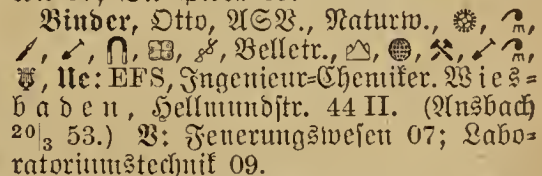 Binder, Otto, ASV., Naturw.,
Belletr.,
Ue: EFS, Ingenieur=Chemiker. Wies=
baden, Hellmundstr. 44 II. (Ansbach
20|3 53.) V: Feuerungswesen 07; Labo=
ratoriumstechnik 09.